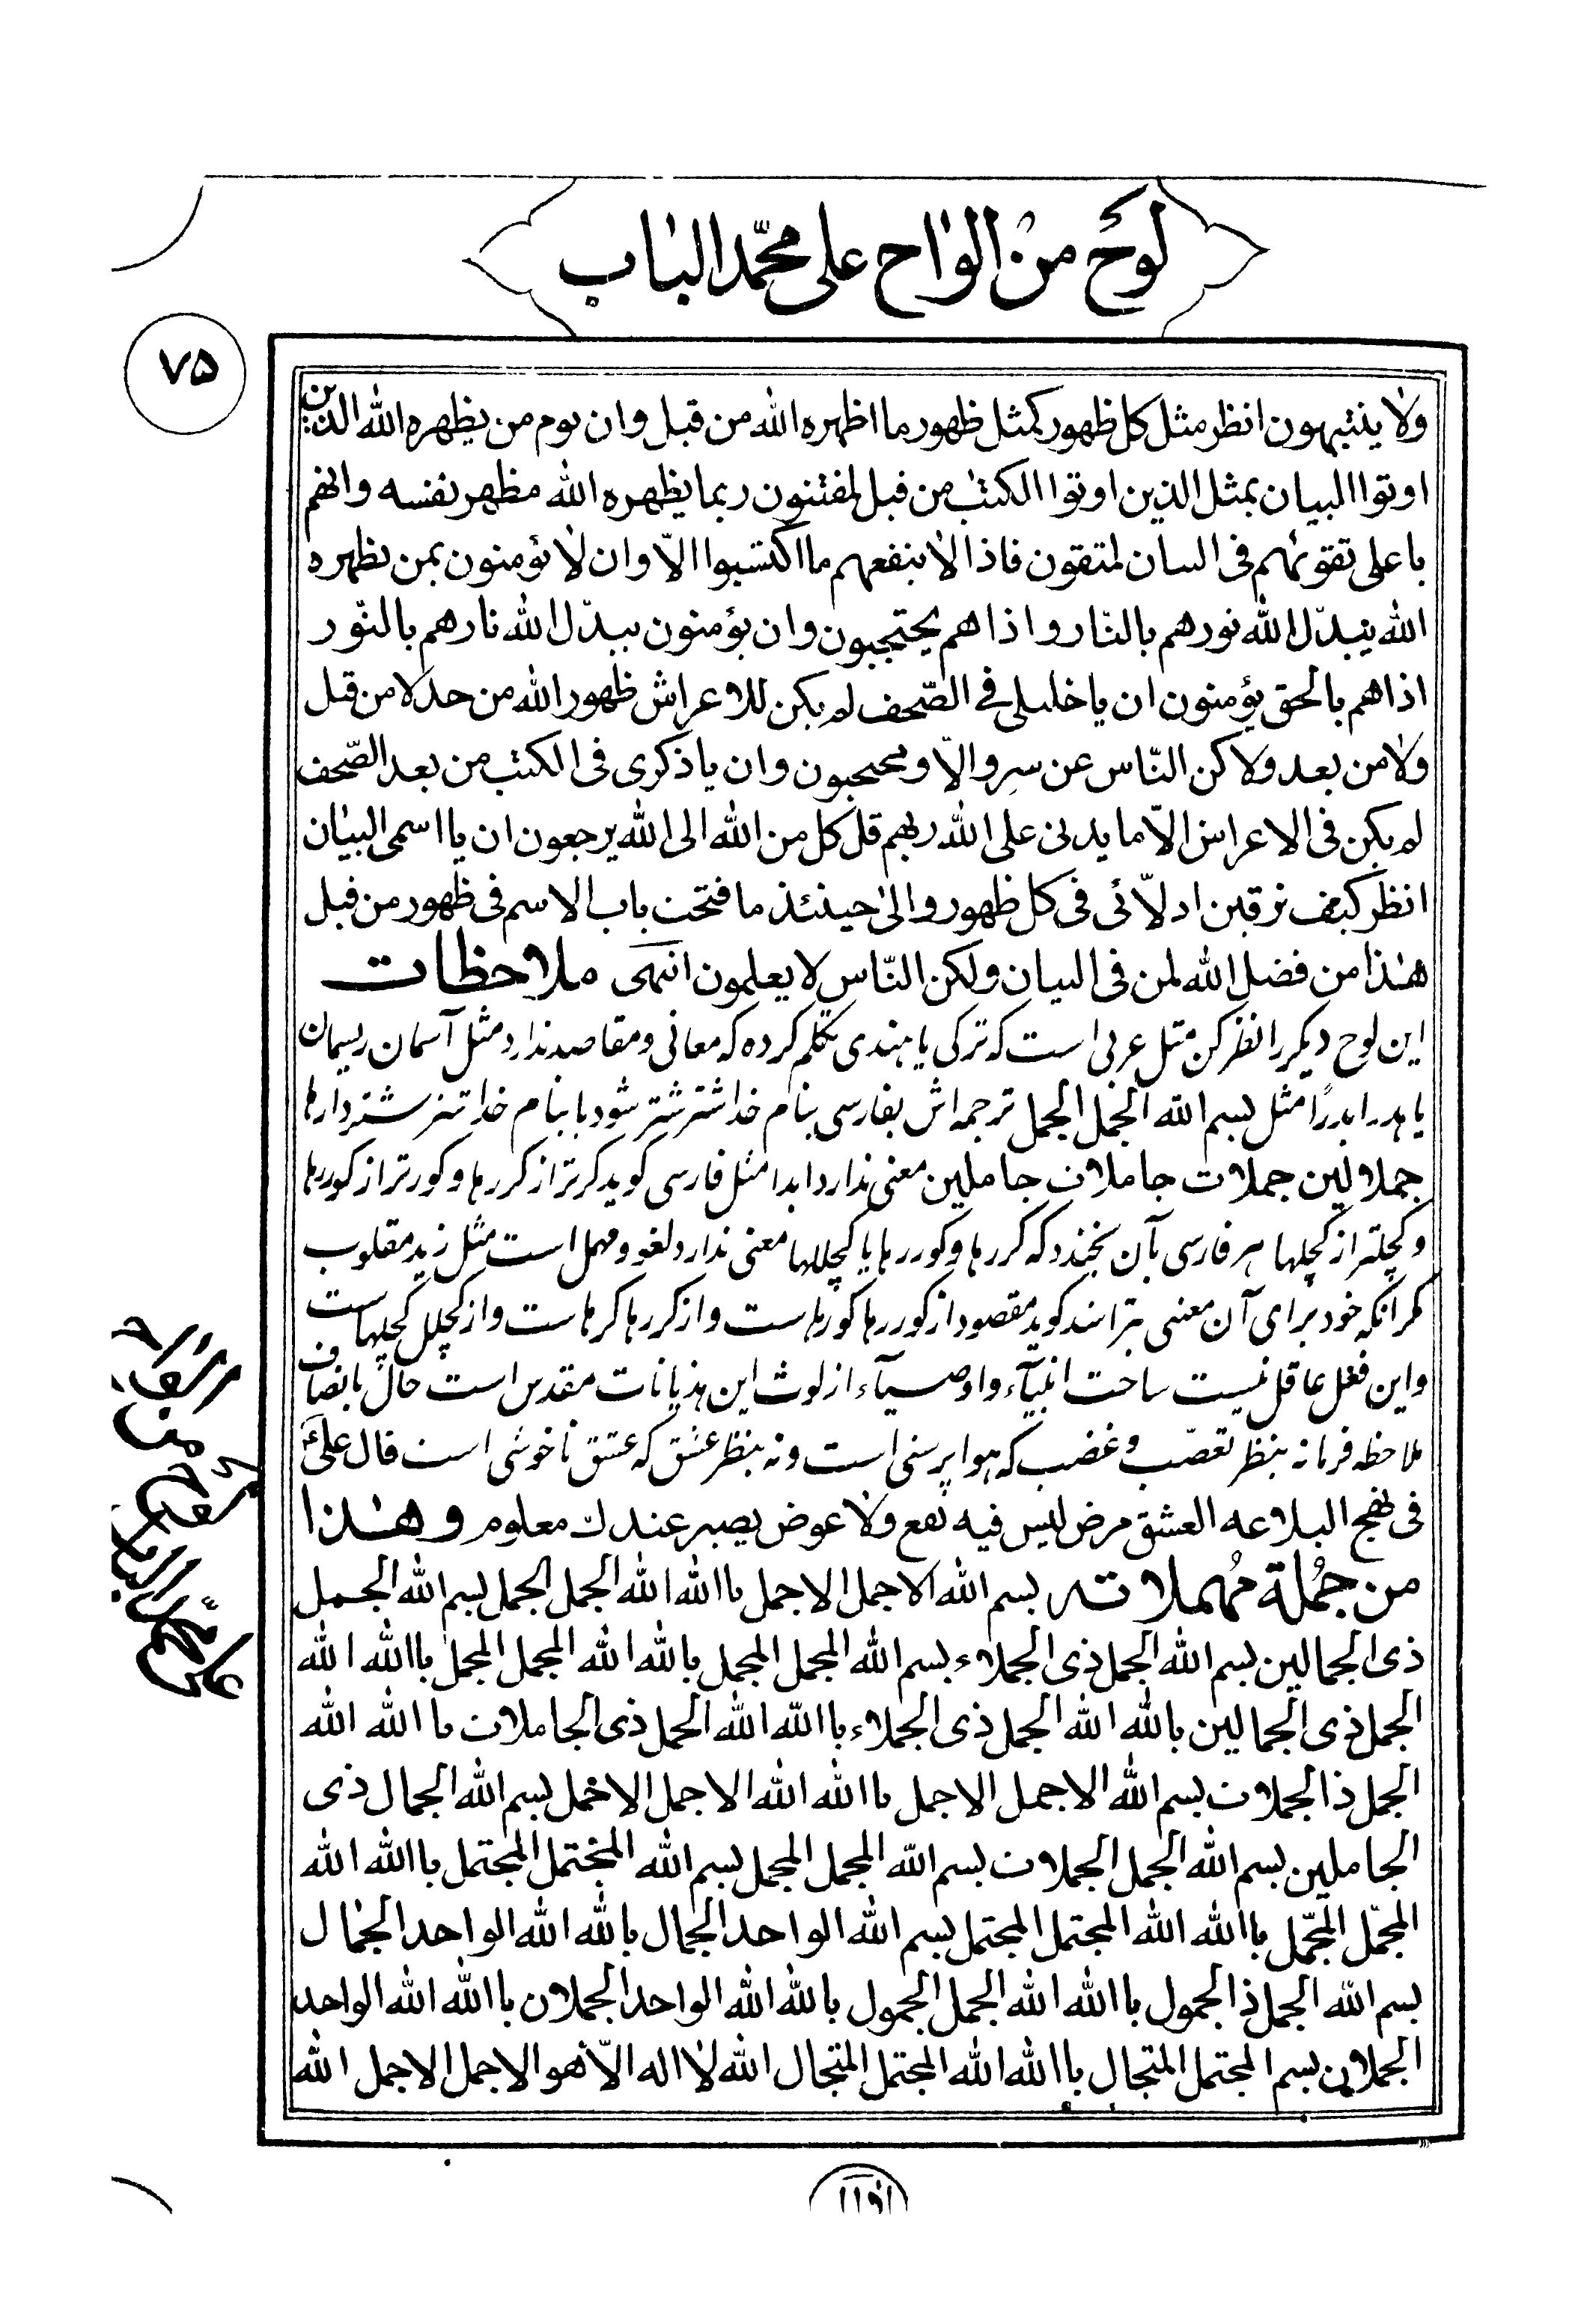 لوح من الواح علی محمّد الباب
۷۵
ولا ینتبهون انظر مثل کل ظهور کمثل ظهور ما اظهره الله من قبل وان یوم من یظهره الله الذین
اوتوا البیان بمثل الذین اوتوا الکتٰب من قبل لمفتنون ربما یظهره الله مظهر نفسه وانهم
باعلی تقوٰئهم فی البیان لمتقون فاذا لا ینفعهم ما اکتسبوا الّا وان لا یؤمنون بمن یظهره
الله یبدّل الله نورهم بالنّار و اذا هم یحتجبون وان یؤمنون یبدّل الله نارهم بالنّور
اذا هم بالحق یؤمنون ان یا خلیلی فی الصّحف لم یکن للاعراش ظهور الله من حد لا من قبل
ولا من بعد ولا کن النّاس عن سر والّا ومحتجبون وان یا ذکری فی الکتب من بعد الصّحف
لم یکن فی الاعراش الّا ما یدلی علی الله ربهم قل کل من الله الی الله یرجعون ان یا اسمی البیان
انظر کیف نرقین ادلّائی فی کل ظهور والیٰ حینئذ ما فتحت باب الاسم فی ظهور من قبل
هٰذا من فضل الله لمن فی البیان ولکن النّاس لا یعلمون انتهی ملاحظات
این لوح دیکر را نظر کن مثل عربی است که ترکی یا هندی تکلم کرده که معانی و مقاصد ندارد مثل آسمان ریسمان
مثل بسم الله الجمل الجمل ترجمه اش بفارسی بنام خدا شتر شتر شود یا بنام خدا شتر شتردارها
جملالین جملات جاملات جاملین معنی ندارد ابدا مثل فارسی کوید کرتر از کررها و کورتر از کوررها
و کچلتر از کچلها هر فارسی بآن بخندد که کررها و کوررها یا کچللها معنی ندارد لغو و مهمل است مثل زید مقلوب
مکر انکه خود برای آن معنی بتراشد کوید مقصود از کوررها کورهاست و از کررها کرهاست و از کچلل کچلهاست
و این فعل عاقل نیست ساحت انبیآء و اوصیآء از لوث این هذیانات مقدس است حال بانصاف
ملاحظه فرما نه بنظر تعصّب و غضب که هواپرستی است و نه بنظر عشق که عشق ناخوشی است قال علیّ ع
فی نهج البلاغه العشق مرض لیس فیه نفع ولا عوض یصبر عندك معلوم وهٰذا
من جُملة مُهملاته بسم الله الاجمل الاجمل باالله الله الجمل الجمل بسم الله الجمل
ذی الجمالین بسم الله الجمل ذی الجملاء بسم الله المجمل المجمل بالله الله المجمل المجمل باالله الله
الجمل ذی الجمالین بالله الله الجمل ذی الجملاء باالله الله الجمل ذی الجاملات باالله الله
الجمل ذالجملات بسم الله الاجمل الاجمل باالله الله الاجمل الاجمل بسم الله الجمال ذی
الجاملین بسم الله الجمل الجملات بسم الله المجمل المجمل بسم الله المجتمل المجتمل باالله الله
المجّمل المجّمل باالله الله المجتمل المجتمل بسم الله الواحد الجمال بالله الله الواحد الجمال
بسم الله الجمل ذالجمول باالله الله الجمل الجمول بالله الله الواحد الجملان باالله الله الواحد
الجملان بسم المجتمل المتجال باالله الله المجتمل المتجال الله لا اله الّا هو الاجمل الاجمل الله